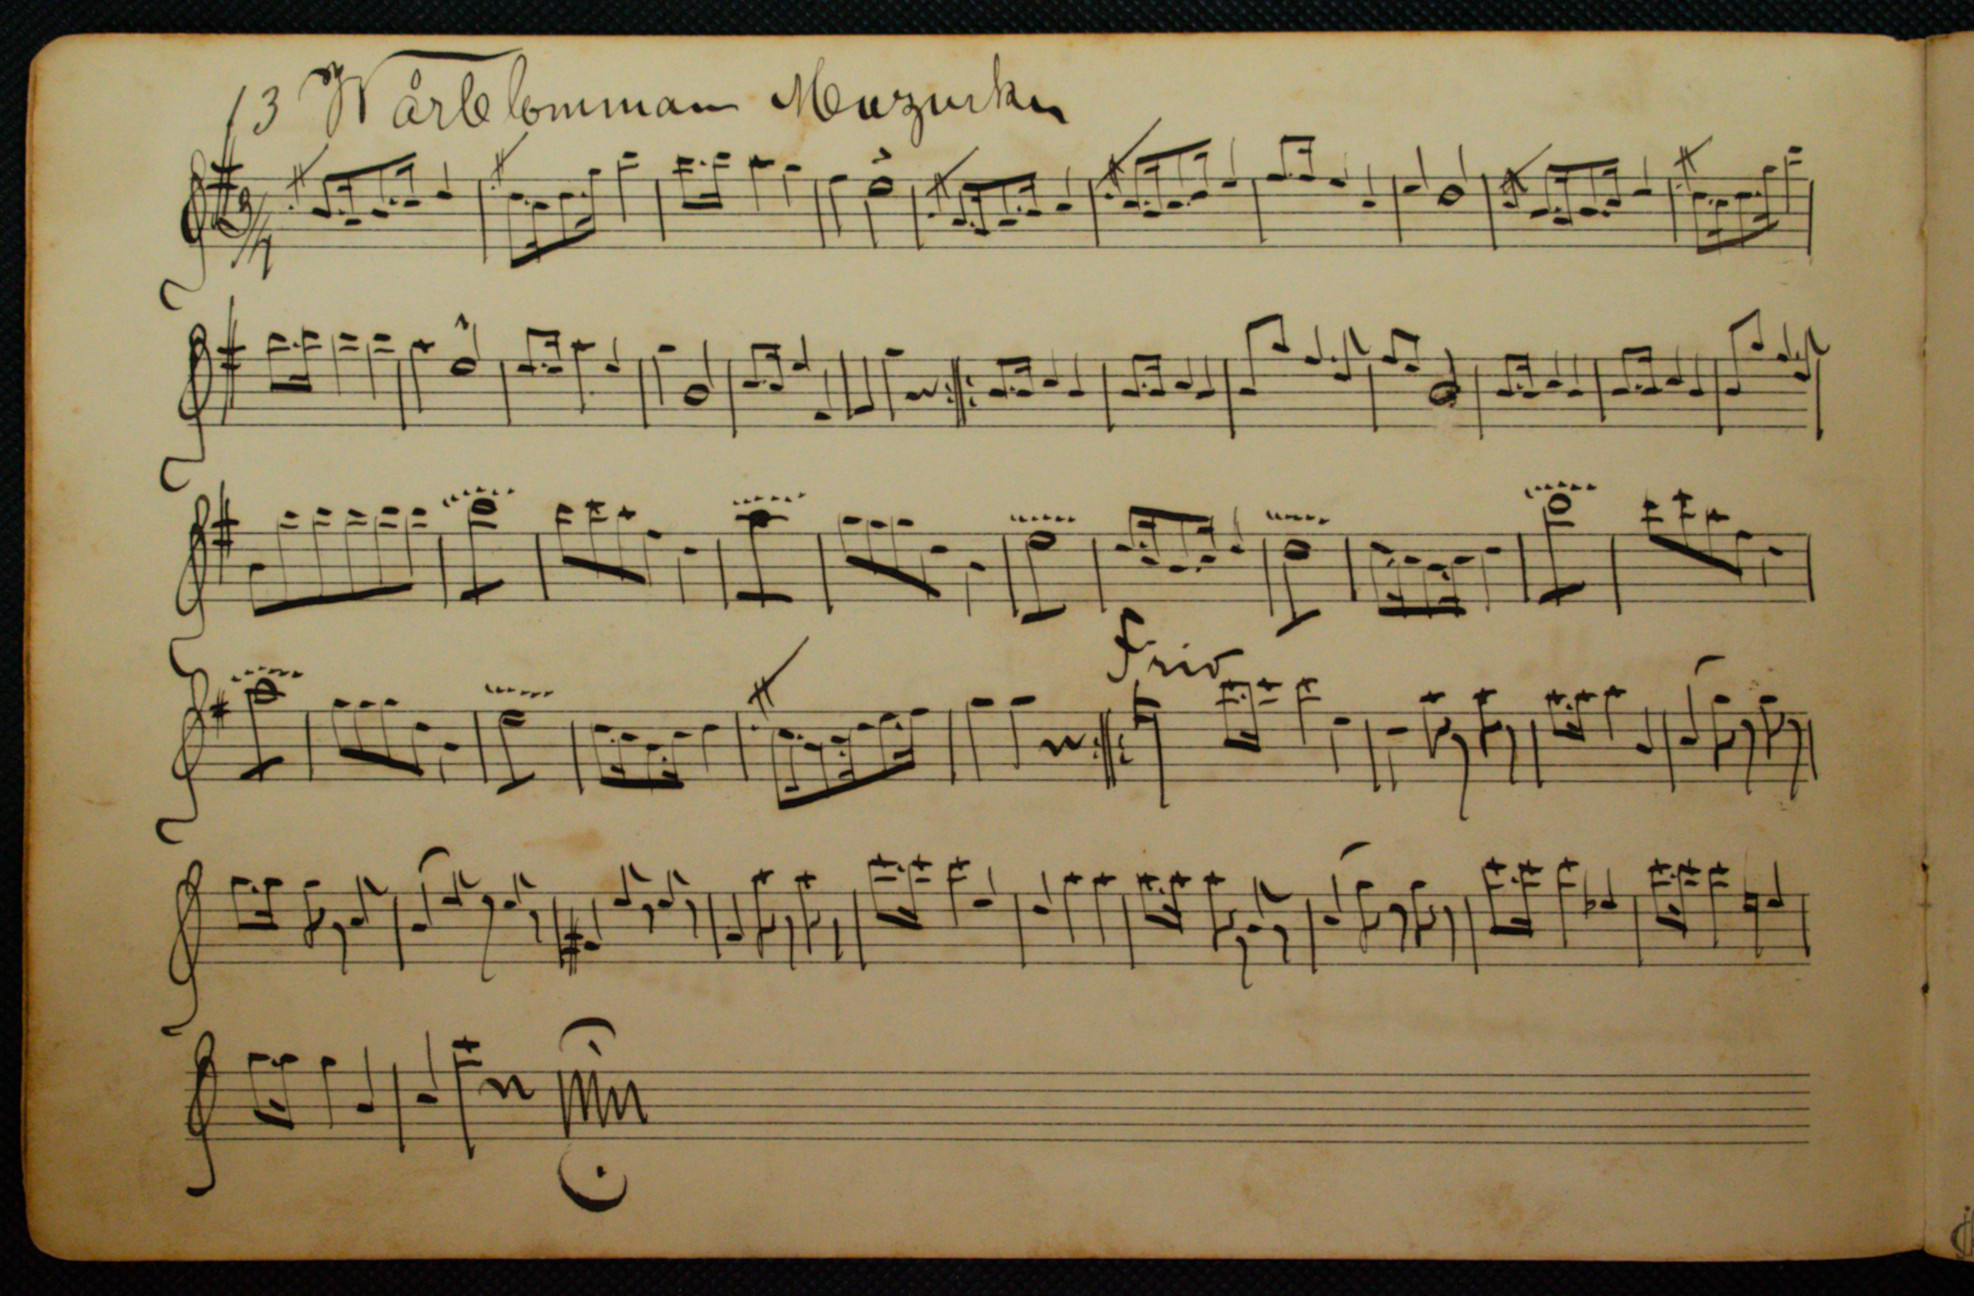 13 Wårblomman Mazurka
3/4
Trio